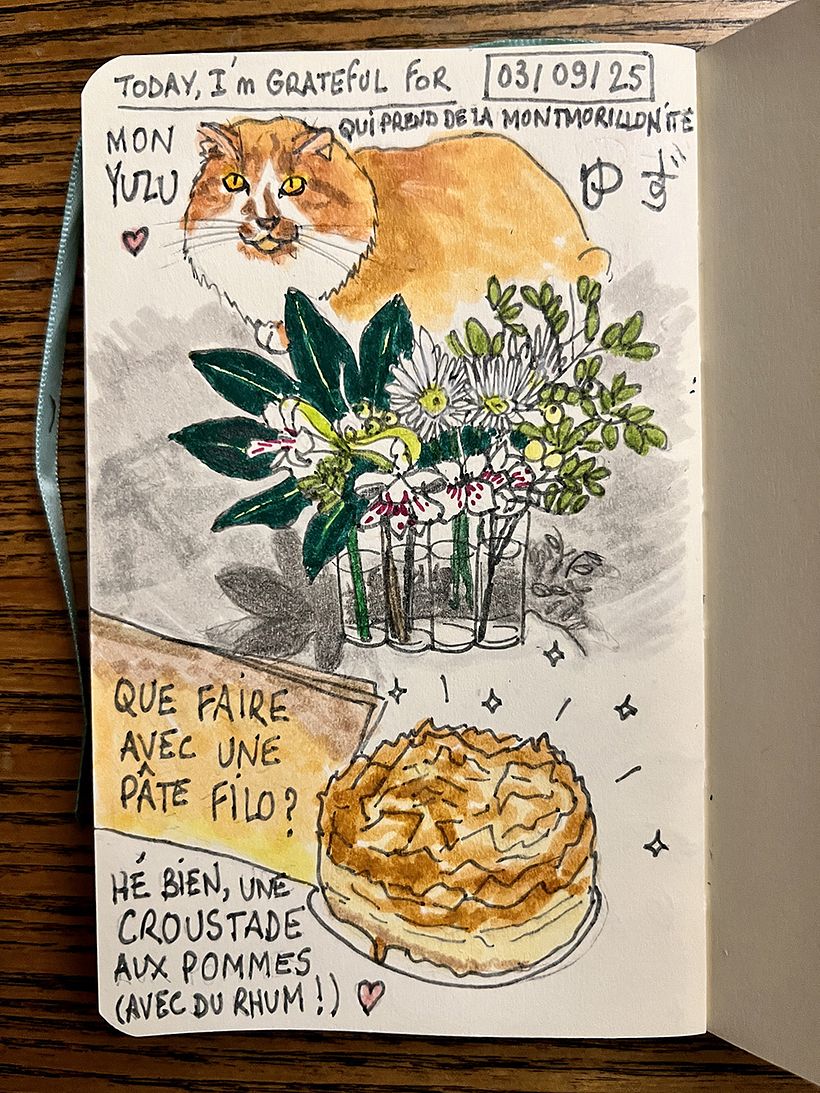 TODAY, I'm GRATEFUL FOR 03/09/25
MON
YUZU
QUI PREND DE LA MONTMORILLONITE
QUE FAIRE
AVEC UNE
PÂTE FILO?
HÉ BIEN, UNE
CROUSTADE
AUX POMMES
(AVEC DU RHUM !)